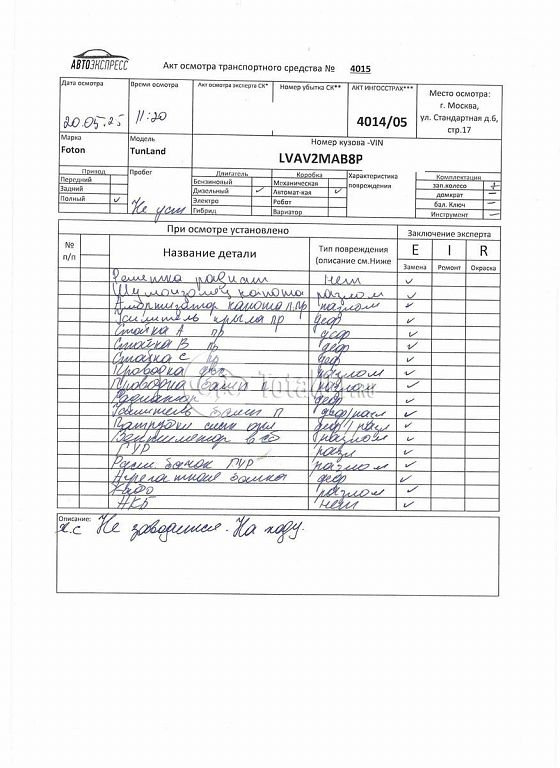 АВТОЭКСПРЕСС
Акт осмотра транспортного средства № 4015
Дата осмотра
Время осмотра
Акт осмотра эксперта СК*
Номер убытка СК**
АКТ ИНГОССТРАХ***
Место осмотра:
г. Москва,
ул. Стандартная д.6,
стр.17
20.05.25
11:20
4014/05
Марка
Foton
Модель
TunLand
Номер кузова -VIN
LVAV2MAB8P
Привод
Передний
Задний
Полный ✓
Пробег
Не уст
Двигатель
Бензиновый
Дизельный ✓
Электро
Гибрид
Коробка
Механическая
Автомат-кая ✓
Робот
Вариатор
Характеристика
повреждения
Комплектация
зап.колесо +
домкрат –
бал. Ключ –
Инструмент –
№
п/п
При осмотре установлено
Заключение эксперта
Название детали
Тип повреждения
(описание см.Ниже
E I R
Замена Ремонт Окраска
Решетка радиат нет ✓
Шумоизоляц капота разлом ✓
Амортизатор капота л.пр разлом ✓
Усилитель крыла пр деф ✓
Стойка А пр деф ✓
Стойка В пр деф ✓
Стойка С пр деф ✓
Проводка двс разлом ✓
Проводка п разлом ✓
Радиатор деф ✓
Усилитель п деф/разл ✓
Патрубки сист охл деф/разл ✓
Вентилятор в сб разлом ✓
ГУР разл ✓
Расш. бачок ГУР разлом ✓
деф ✓
разлом ✓
АКБ нет ✓
Total
Описание:
Не заводится. На ходу.